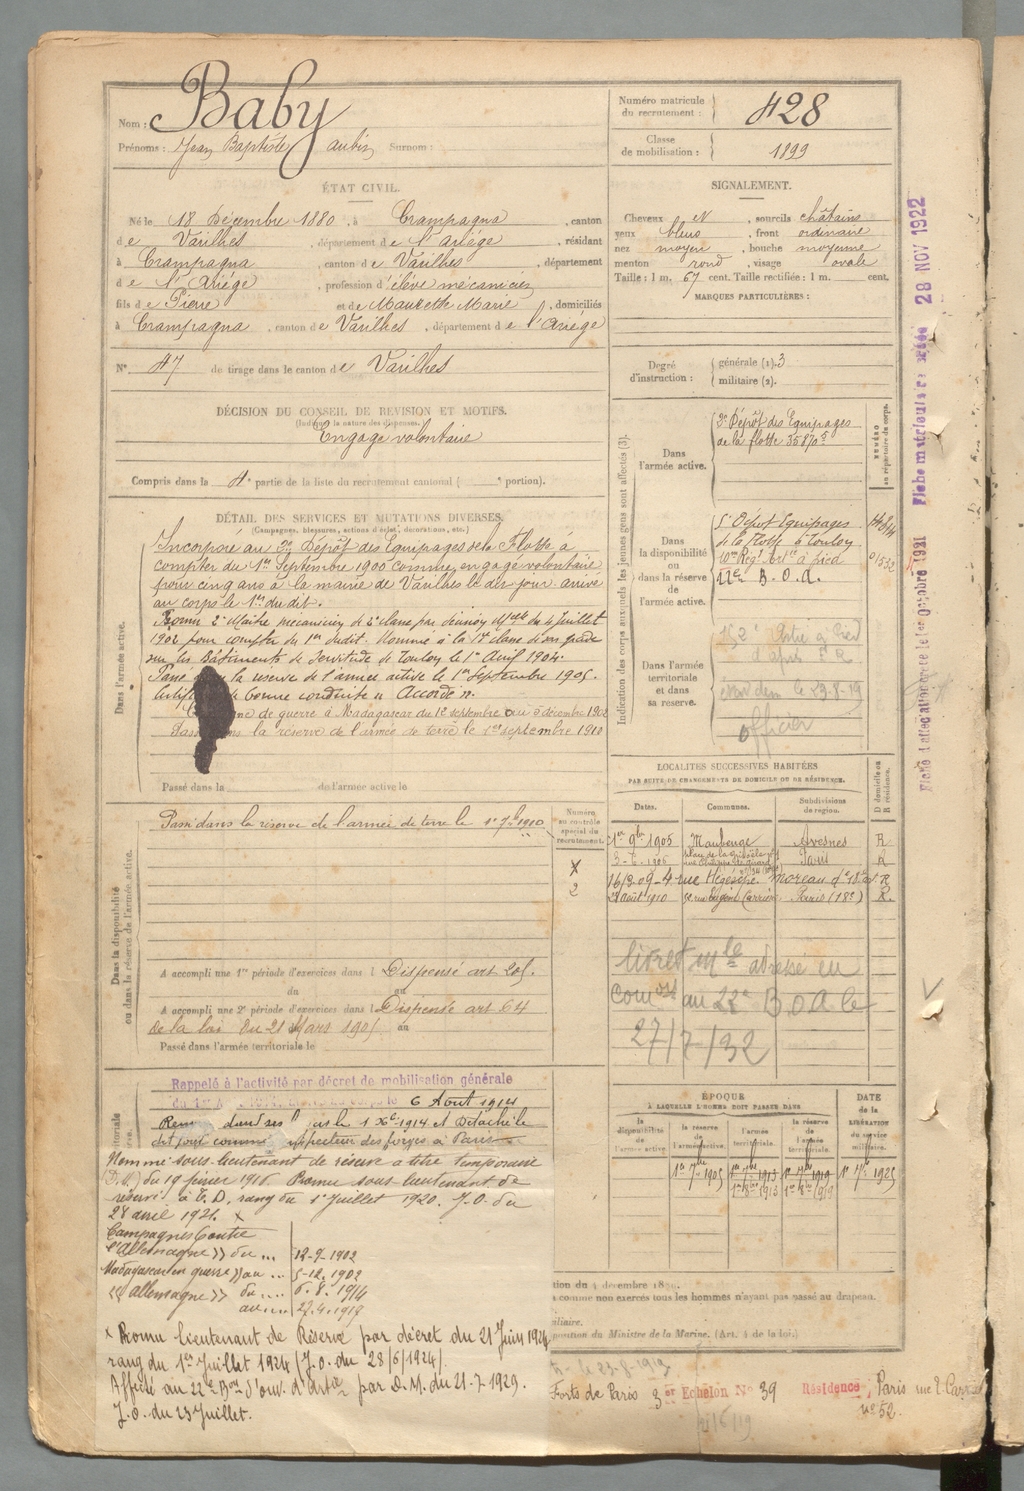 Nom : Baby
Prénoms : Jean Baptiste Aubin Surnom :
Numéro matricule du recrutement : 428
Classe de mobilisation : 1899
ÉTAT CIVIL.
Né le 18 Décembre 1880, à Crampagna, canton
de Varilhes, département de l'Ariège, résidant
à Crampagna, canton de Varilhes, département
de l'Ariège, profession d'élève mécanicien
fils de Pierre et de Maurette Marie, domiciliés
à Crampagna, canton de Varilhes, département de l'Ariège
N° 47 de tirage dans le canton de Varilhes
DÉCISION DU CONSEIL DE REVISION ET MOTIFS.
(Indiquer la nature des dispenses.)
Engagé volontaire
Compris dans la 4e partie de la liste du recrutement cantonal ( e portion).
SIGNALEMENT.
Cheveux et, sourcils châtains
yeux bleus, front ordinaire
nez moyen, bouche moyenne
menton rond, visage ovale
Taille : 1 m. 67 cent. Taille rectifiée : 1 m. cent.
MARQUES PARTICULIÈRES :
Degré d'instruction : générale (1). 3
militaire (2).
DÉTAIL DES SERVICES ET MUTATIONS DIVERSES.
(Campagnes, blessures, actions d'éclat, décorations, etc.)
Dans l'armée active.
Incorporé au 3e Dépôt des Equipages de la Flotte à
compter du 1er Septembre 1900 comme engagé volontaire
pour cinq ans à la mairie de Varilhes le dit jour arrivé
au corps le 1er du dit.
Promu 2e Maître mécanicien de 2e classe par décision Mlle du 4 Juillet
1902 pour compter du 1er dudit. Nommé à la 1e classe de son grade
sur les Bâtiments de Servitude de Toulon le 1er Avril 1904.
Passé la réserve de l'armée active le 1er Septembre 1905.
de bonne conduite "Accordé".
de guerre à Madagascar du 12 septembre au 5 décembre 1902
la réserve de l'armée de terre le 1er septembre 1910
Passé dans la de l'armée active le
Dans la disponibilité ou dans la réserve de l'armée active.
Passé dans la réserve de l'armée de terre le 1er 7bre 1910
Numéro au contrôle spécial du recrutement.
X
2
A accompli une 1re période d'exercices dans l Dispensé art 205.
du au
A accompli une 2e période d'exercices dans l Dispensé art 64
de la loi du 21 Mars 1905 au
Passé dans l'armée territoriale le
Indication des corps auxquels les jeunes gens sont affectés (3).
NUMÉRO au répertoire du corps.
Dans l'armée active.
3e Dépôt des Equipages
de la flotte 35870
Dans la disponibilité ou dans la réserve de l'armée active.
5e Dépôt Equipages
de la Flotte à Toulon
10me Régt Artie à pied
22e B.O.A.
Dans l'armée territoriale et dans sa réserve.
le 29-8-19
officier
LOCALITÉS SUCCESSIVES HABITÉES
PAR SUITE DE CHANGEMENTS DE DOMICILE OU DE RÉSIDENCE.
Dates. Communes. Subdivisions de région. D domicile ou R résidence.
1er 9bre 1905 Maubeuge Avesnes R
Paris R
16/3-09 - 4 rue Hégésippe Moreau R
Août 1910 52 rue Eugène Carrière Paris (18e) R.
livret mle adressé en
com au 22e B.O.A le
27/7/32
Rappelé à l'activité par décret de mobilisation générale
6 Août 1914
le 1 Xbre 1914 et Détaché le
dit jour comme inspecteur des forges à Paris
Nommé sous-lieutenant de réserve à titre temporaire
(D.M.) du 19 février 1916 Promu sous-lieutenant de
réserve à T.D. rang du 1er Juillet 1920. J.O. du
28 avril 1921. x
Campagnes Contre
l'Allemagne du ... 12-9-1902
Madagascar en guerre au ... 5-12-1902
"Allemagne" du .... 6.8.1914
au .... 27.4.1919
x Promu lieutenant de Réserve par décret du 21 Juin 1924
rang du 1er Juillet 1924 (J.O. du 28/6/1924).
Affecté au 22e Bon d'ouv. d'Artie par D.M. du 21-7-1929.
J.O. du 23 Juillet.
ÉPOQUE
À LAQUELLE L'HOMME DOIT PASSER DANS
la disponibilité de l'armée active.
la réserve de l'armée active.
l'armée territoriale.
la réserve de l'armée territoriale.
DATE de la LIBÉRATION du service militaire.
1er 7bre 1905 1er 7bre 1913 1er 7bre 1919 1er 7bre 1925
comme non exercés tous les hommes n'ayant pas passé au drapeau.
du Ministre de la Marine. (Art. 4 de la loi.)
Forts de Paris 3er Echelon No 39 Résidence, Paris rue E. Carr
no 52.
28 NOV 1922